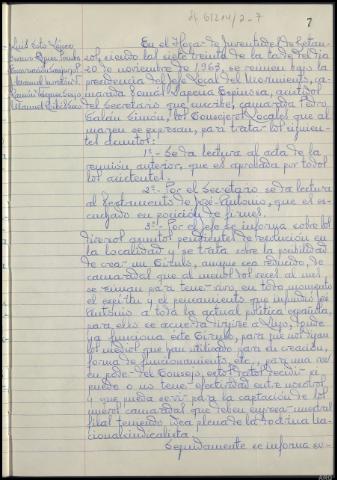 7
En el Hogar de Juventudes de Betan-
zos, siendo las siete treinta de la tarde del día
20 de noviembre de 1.962, se reunen bajo la
presidencia del Jefe Local del Movimiento, ca-
marada Tomás Dapena Espinosa, asistidos
del Secretario que suscribe, camarada Pedro
Galán Simón, los Consejeros Locales que al
margen se expresan, para tratar los siguien-
tes asuntos:
1º.- Se da lectura al acta de la
reunión anterior, que es aprobada por todos
los asistentes.
2º.- Por el Secretario se da lectura
al testamento de José-Antonio, que es es-
cuchado en posición de firmes.
3º.- Por el Jefe se informa sobre los
diversos asuntos pendientes de resolución en
la localidad y se trata sobre la posibilidad
de crear un Círculo, aunque sea reducido, de
camaradas que al menos dos veces al mes
se reunan para tener vivo, en todo momento
el espíritu y el pensamiento que infundió José
Antonio a toda la actual política española,
para ello se acuerda dirigirse a Lugo, donde
ya funciona este Círculo, para que nos digan
los medios que han utilizado para su creación,
forma de funcionamiento, etc., y para una vez
en poder del Consejo, estos datos decidir si
puede o no tener efectividad entre nosotros
y que pueda servir para la captación de los
nuevos camaradas que deben engrosar nuestras
filas teniendo idea plena de la doctrina na-
cionalsindicalista.
Seguidamente se informa so-